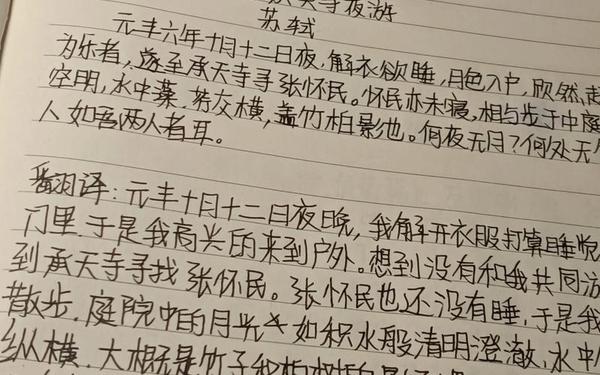 寺夜游
苏轼
元丰六年十月十二日夜,解衣欲睡,月色入户,欣然起
为乐者,遂至承天寺寻张怀民。怀民亦未寝,相与步于中庭
空明,水中藻、荇交横,盖竹柏影也。何夜无月?何处无
人如吾两人者耳。
翻译:元丰十月十二日夜晚,我解开衣服打算睡觉
门里于是我高兴的来到户外。想到没有和我共同
到承天寺寻找张怀民。张怀民也还没有睡,于是我
散步.庭院中的月光如积水般清明澄澈,水中
纵横.大概是竹子和柏树的